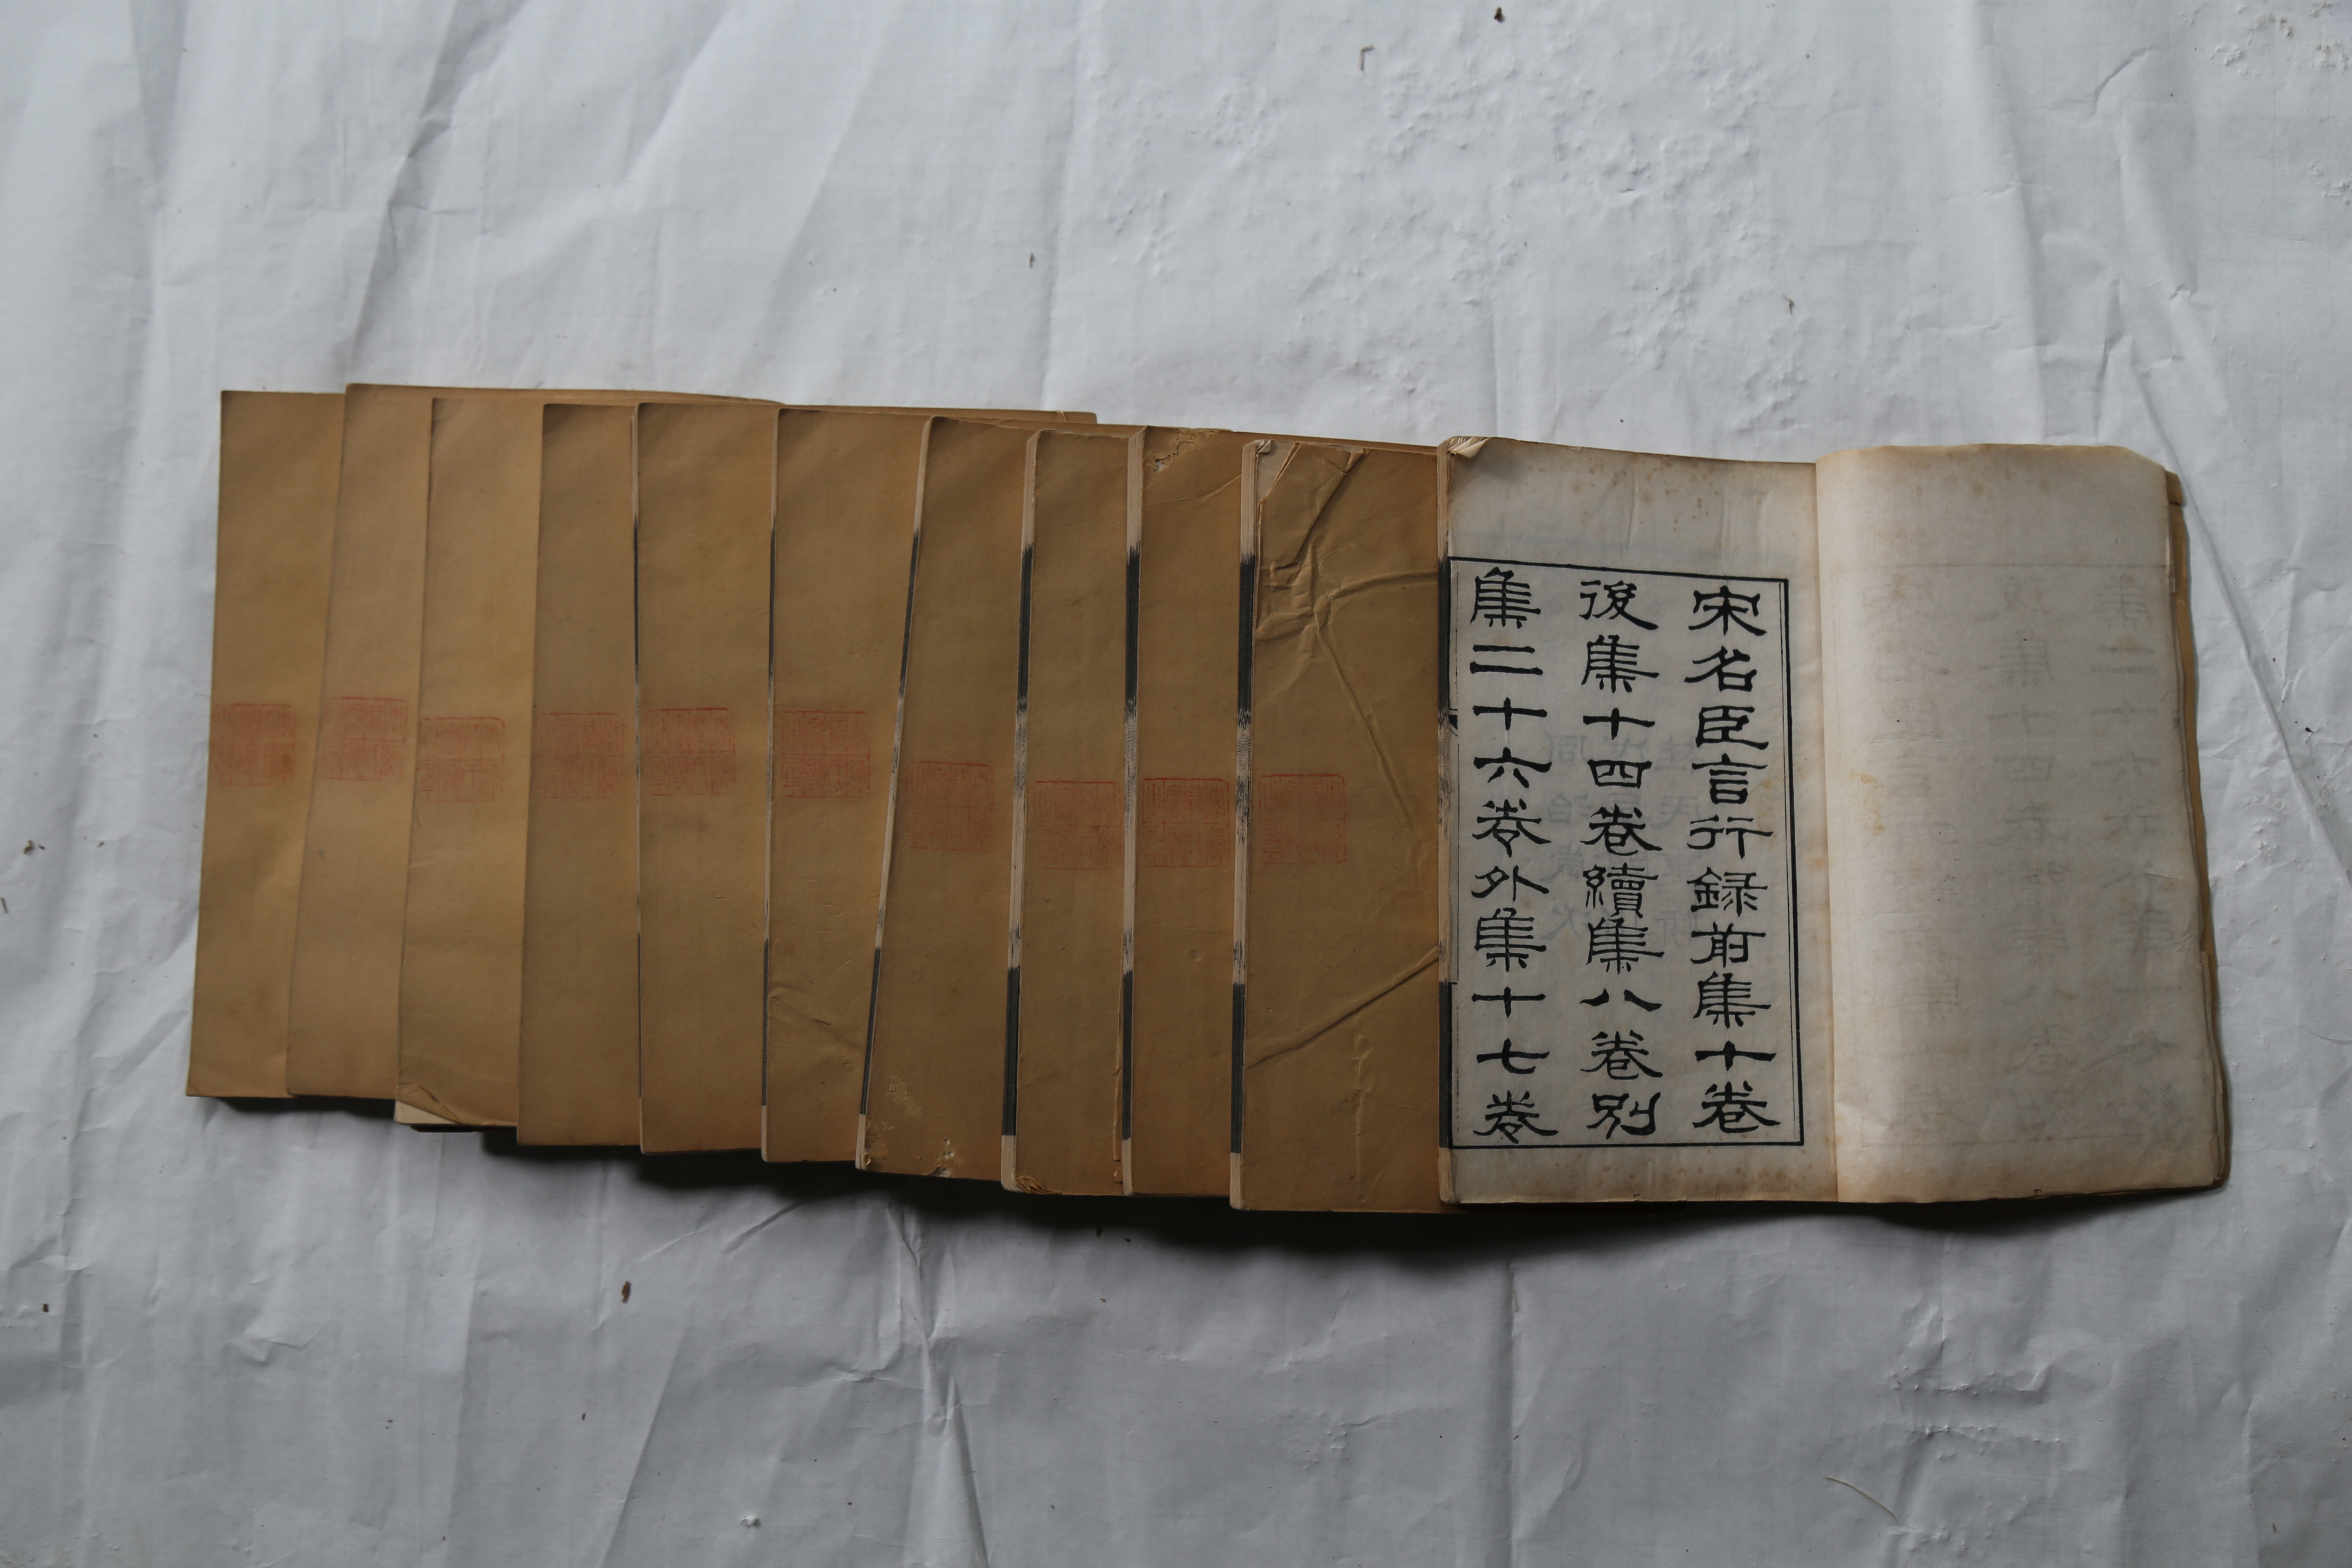 宋名臣言行録前集十卷
後集十四卷續集八卷別
集二十六卷外集十七卷